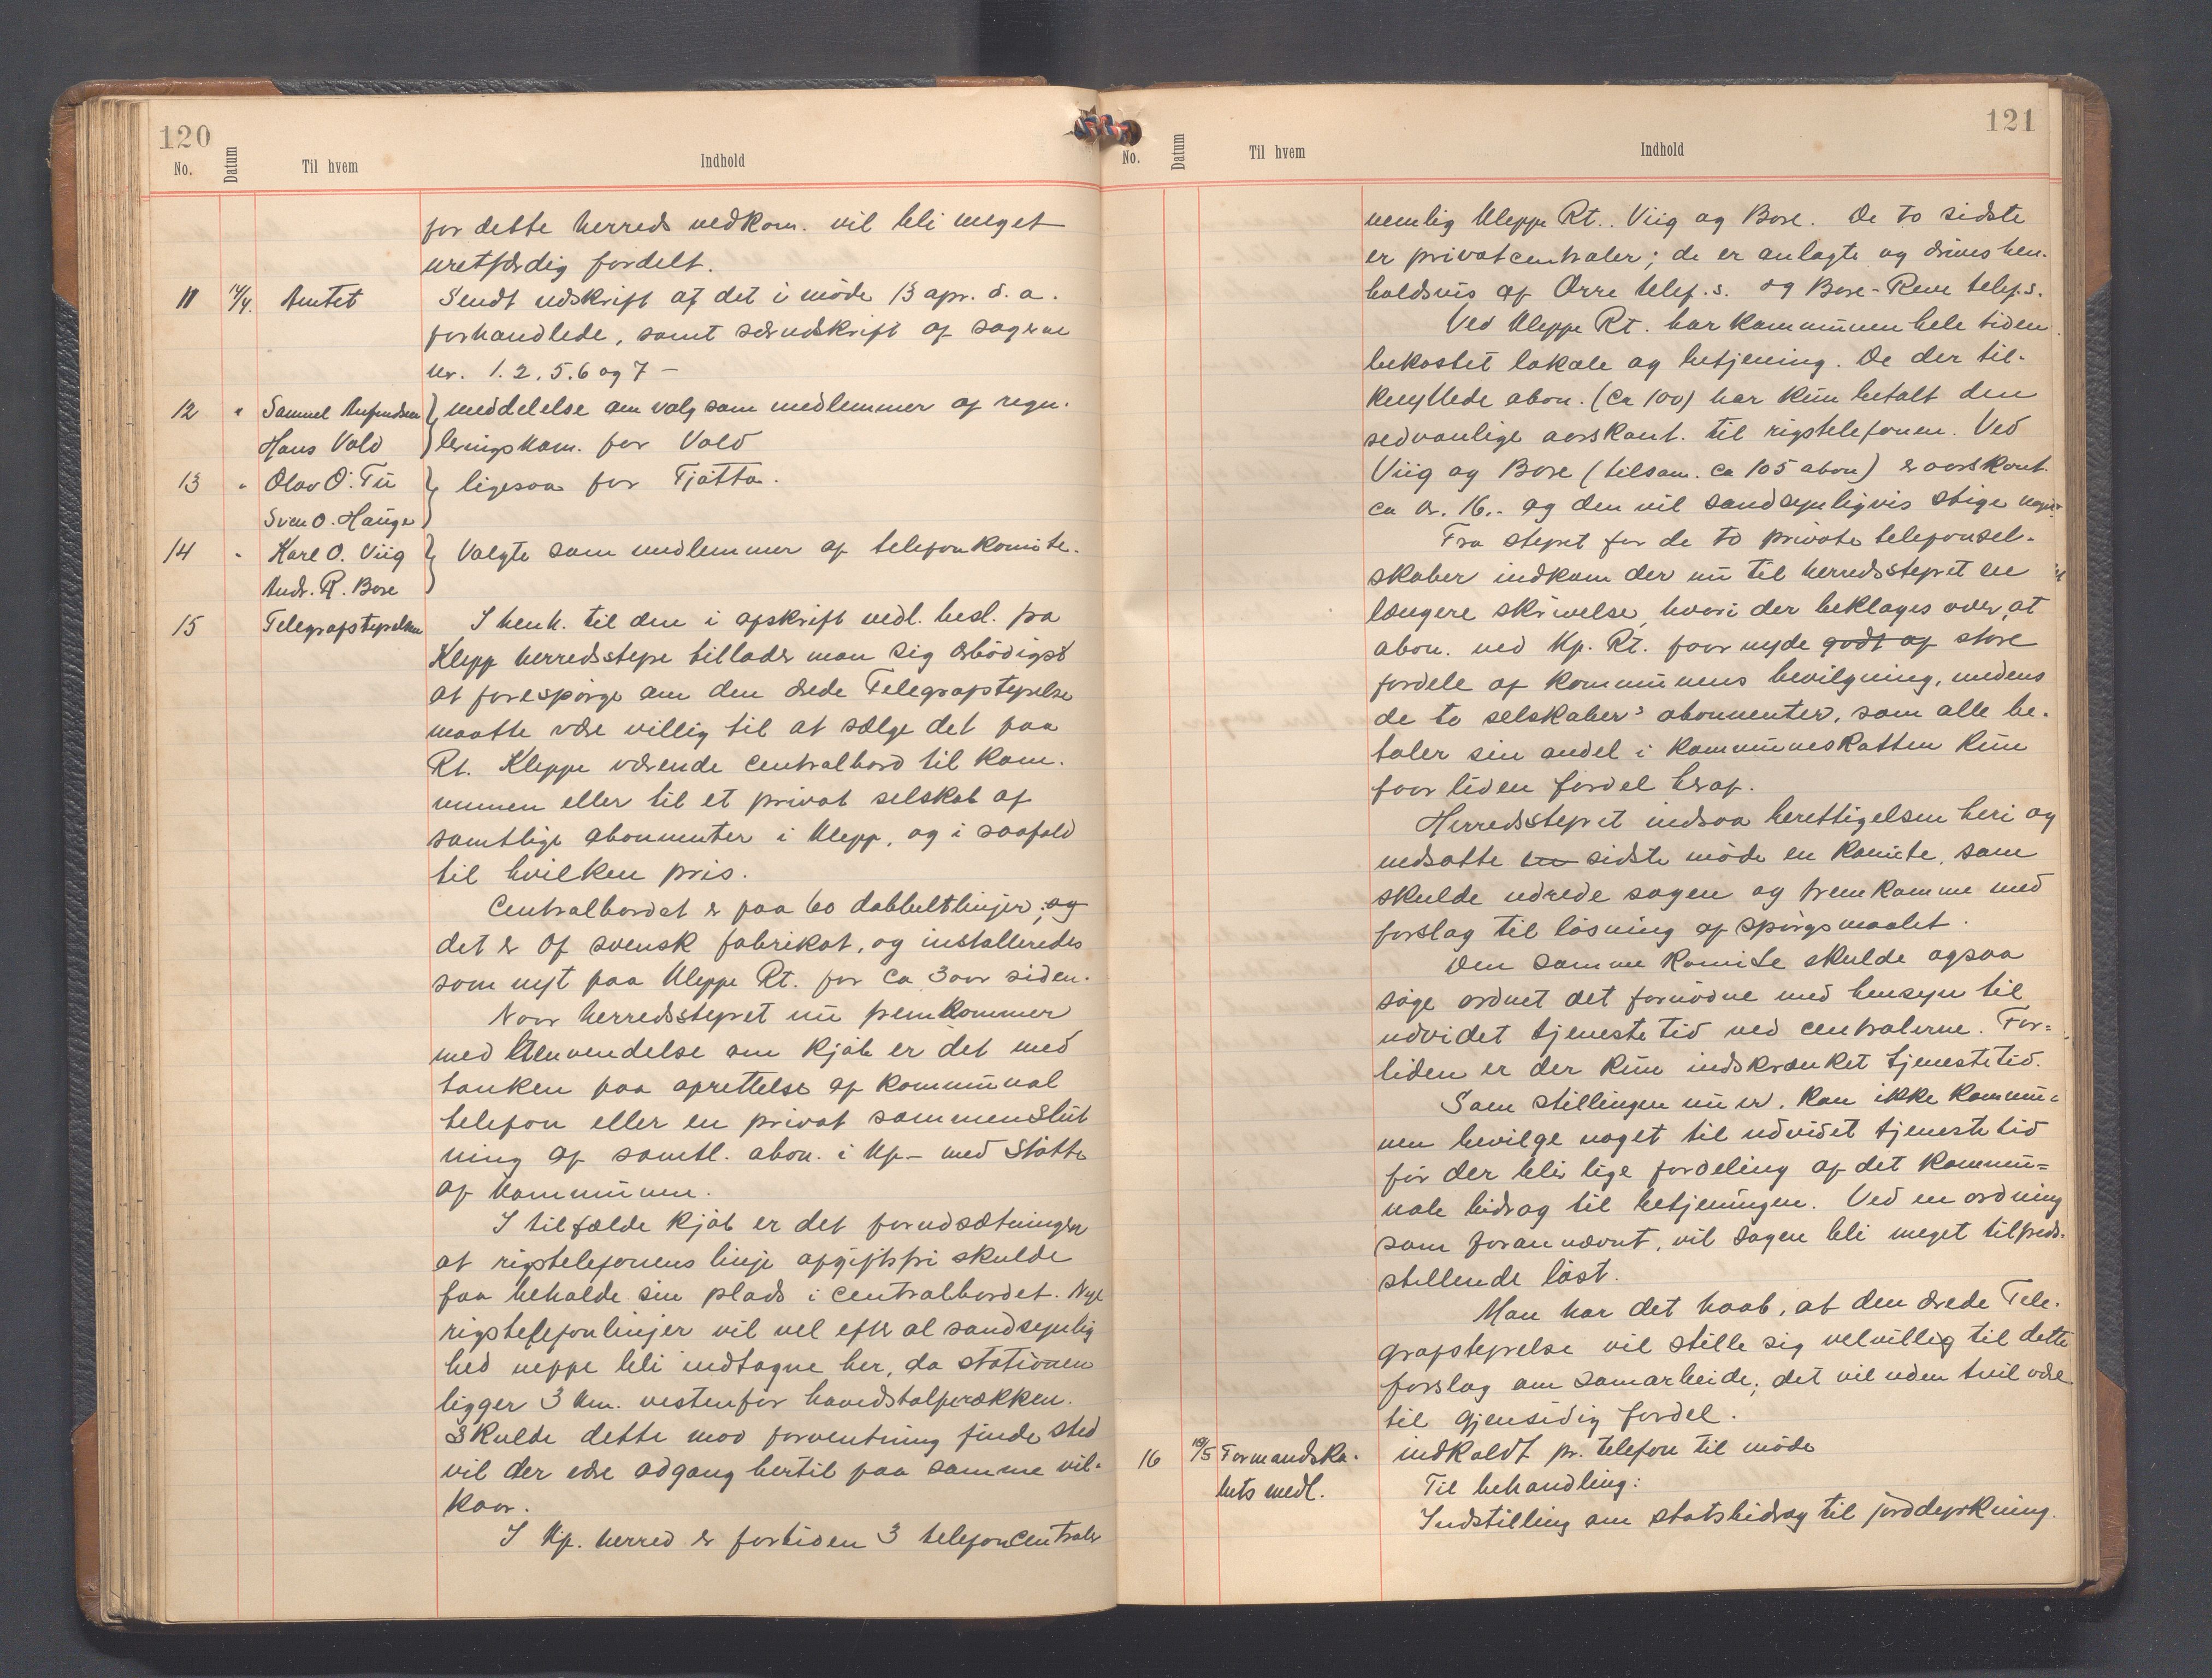 120
No. Datum Til hvem Indhold
for dette herreds vedkom. vil bli meget
uretfærdig fordelt.
11 14/4. Amtet Sendt udskrift af det i møde 13 apr. d. a.
forhandlede, samt særudskrift af sagerne
nr. 1. 2. 5. 6 og 7 –
12 " Samuel } meddelelse om valg som medlemmer af regu-
Hans Vold } leringskom. for Vold
13 " Olav O. Tu } ligesaa for Tjøtta.
Sven O. Hauge }
14 " Karl O. Viig } Valgte som medlemmer af telefonkomite.
Andr. R. Bore }
15 Telegrafstyrelsen I henh. til den i afskrift vedl. besl. fra
Klepp herredsstyre tillader man sig ærbødigst
at forespørge om den ærede Telegrafstyrelse
maatte være villig til at sælge det paa
Rt. Kleppe værende centralbord til kom-
munen eller til et privat selskab af
samtlige abonnenter i Klepp, og i saafald
til hvilken pris.
Centralbordet er paa 60 dobbeltlinjer; og
det er af svensk fabrikat, og installeredes
som nyt paa Kleppe Rt. for ca 3 aar siden.
Naar herredsstyret nu fremkommer
med henvendelse om kjøb er det med
tanken paa oprettelse af kommunal
telefon eller en privat sammenslut
ning af samtl. abon. i Kp – med støtte
af kommunen.
I tilfælde kjøb er det forudsætningen
at rigstelefonens linje afgiftsfri skulde
faa beholde sin plads i centralbordet. Nye
rigstelefonlinjer vil vel efter al sandsynlig
hed neppe bli indtagne her, da stationen
ligger 3 km. vestenfor hovedstolperækken.
Skulde dette mod forventning finde sted
vil der være adgang hertil paa samme vil-
kaar.
I Kp. herred er fortiden 3 telefoncentraler
121
No. Datum Til hvem Indhold
nemlig Kleppe Rt.. Viig og Bore. De to sidste
er privatcentraler; de er anlagte og drives hen-
holdsvis af Orre telef.s. og Bore-Reve telef.s.
Ved Kleppe Rt. har kommunen hele tiden
bekostet lokale og betjening. De der til-
knyttede abon. (ca 100) har kun betalt den
sedvanlige aarskont. til rigstelefonen. Ved
Viig og Bore (tilsam. ca 105 abon) er aarskont.
ca kr. 16.- og den vil sandsynligvis stige noget
Fra styret for de to private telefonsel-
skaber indkom der nu til herredsstyret en
længere skrivelse, hvori der beklages over, at
abon. ved Kp. Rt. faar nyde godt af store
fordele af kommunens bevilgning, medens
de to selskabers abonnenter, som alle be-
taler sin andel i kommuneskatten kun
faar liden fordel heraf.
Herredsstyret indsaa berettigelsen heri og
nedsatte sidste møde en komite, som
skulde udrede sagen og fremkomme med
forslag til løsning af spørgsmaalet.
Den samme komite skulde ogsaa
søge ordnet det fornødne med hensyn til
udvidet tjenestetid ved centralerne. For=
tiden er der kun indskrænket tjenestetid.
Som stillingen nu er, kan ikke kommu=
nen bevilge noget til udvidet tjenestetid
før der blir lige fordeling af det kommu=
nale bidrag til betjeningen. Ved en ordning
som forannævnt, vil sagen bli meget tilfreds-
stillende løst.
Man har det haab, at den ærede Tele-
grafstyrelse vil stille sig velvillig til dette
forslag om samarbeide; det vil uden tvil være
til gjensidig fordel.
16 19/5 Formandska- indkaldt pr. telefon til møde
bets medl. Til behandling:
Indstilling om statsbidrag til jorddyrkning.